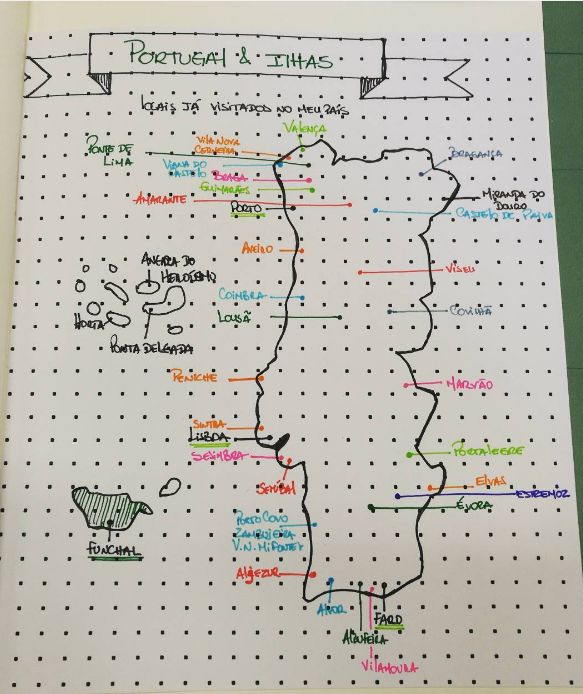 PORTUGAL & ILHAS
LOCAIS JÁ VISITADOS NO MEU PAÍS
VALENÇA
PONTE DE
LIMA
VILA NOVA
CERVEIRA
VIANA DO
CASTELO
BRAGA
GUIMARÃES
BRAGANÇA
AMARANTE
PORTO
MIRANDA DO
DOURO
CASTELO DE PAIVA
AVEIRO
VISEU
ANGRA DO
HEROÍSMO
HORTA
PONTA DELGADA
COIMBRA
LOUSÃ
COVILHÃ
PENICHE
MARVÃO
SINTRA
LISBOA
SESIMBRA
SETÚBAL
PORTALEGRE
ELVAS
ESTREMOZ
ÉVORA
FUNCHAL
PORTO COVO
ZAMBUJEIRA
V.N. MILFONTES
ALJEZUR
ALVOR
ALBUFEIRA
FARO
VILAMOURA